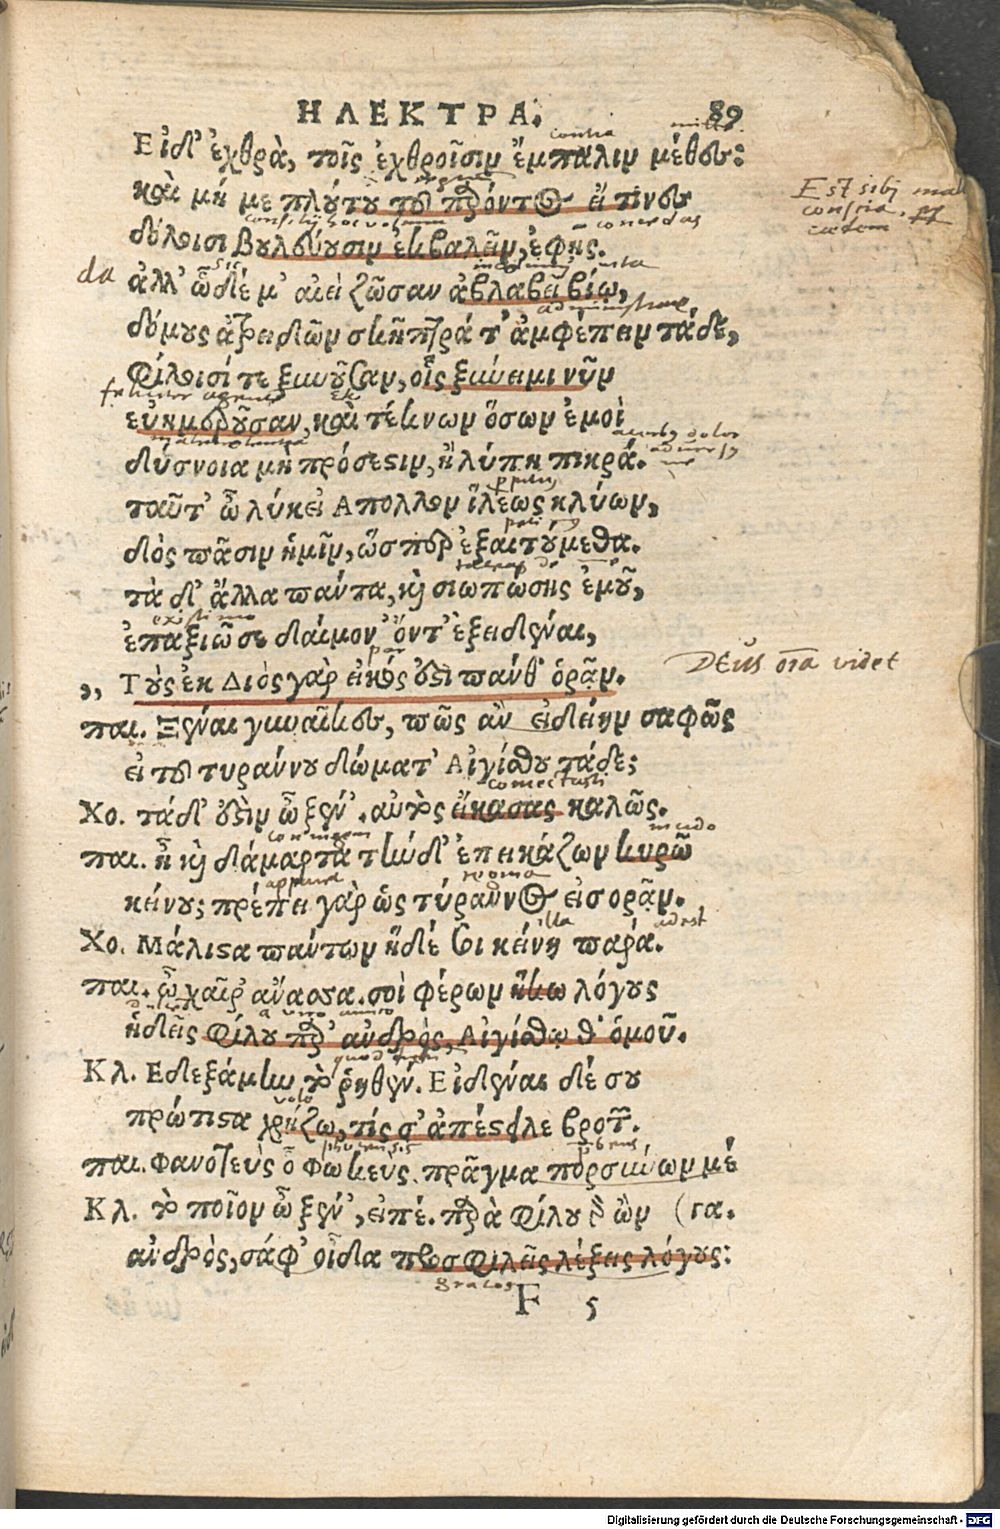 ΗΛΕΚΤΡΑ. 89
contra
Εἰ δ' ἐχθρὰ, τοῖς ἐχθροῖσιν ἔμπαλιν μέθες:
καὶ μή με πλούτου τοῦ παρόντος εἴ τινες
Est sibi mali
conscia.
δόλοισι βουλεύουσιν ἐκβαλεῖν, ἐφῇς.
da ἀλλ' ὧδέ μ' αἰεὶ ζῶσαν ἀβλαβεῖ βίῳ,
δόμους ἀτρειδῶν σκῆπτρά τ' ἀμφέπειν τάδε,
φίλοισί τε ξυνοῦσαν, οἷς ξύνειμι νῦν
εὐημεροῦσαν, καὶ τέκνων ὅσων ἐμοὶ
δύσνοια μὴ πρόσεστιν, ἢ λύπη πικρά.
ταῦτ' ὦ λύκει' Απολλον ἵλεως κλύων,
δὸς πᾶσιν ἡμῖν, ὥσπερ ἐξαιτούμεθα.
τὰ δ' ἄλλα πάντα, καὶ σιωπώσης ἐμοῦ,
existimo
ἐπαξιῶ σε δαίμον' ὄντ' ἐξειδέναι,
,, Τοὺς ἐκ Διὸς γὰρ εἰκός ἐστι πάνθ' ὁρᾷν.
Deus oīa videt
παι. Ξέναι γυναῖκες, πῶς ἂν εἰδείην σαφῶς
εἰ τοῦ τυράννου δώματ' Αἰγίσθου τάδε;
Χο. τάδ' ἐστὶν ὦ ξέν'. αὐτὸς ᾔκασας καλῶς.
παι. ἦ καὶ δάμαρτα τήνδ' ἐπεικάζων κυρῶ
κείνου; πρέπει γὰρ ὡς τύραννος εἰσορᾷν.
illa adest
Χο. Μάλιστα πάντων ἥδέ σοι κείνη πάρα.
παι. ὦ χαῖρ' ἄνασσα. σοὶ φέρων ἥκω λόγους
ἡδεῖς φίλου παρ' ἀνδρὸς, Αἰγίσθῳ θ' ὁμοῦ.
Κλ. Εδεξάμην τὸ ῥηθέν. Εἰδέναι δέ σου
volo
πρώτιστα χρῄζω, τίς σ' ἀπέστειλε βροτῶν.
παι. Φανοτεὺς ὁ Φωκεὺς. πρᾶγμα πορσύνων μέ
Κλ. τὸ ποῖον ὦ ξέν', εἰπέ. παρὰ φίλου γὰρ ὢν (γα.
ἀνδρὸς, σάφ' οἶδα προσφιλεῖς λέξεις λόγους:
gratos
F 5
Digitalisierung gefördert durch die Deutsche Forschungsgemeinschaft - DFG